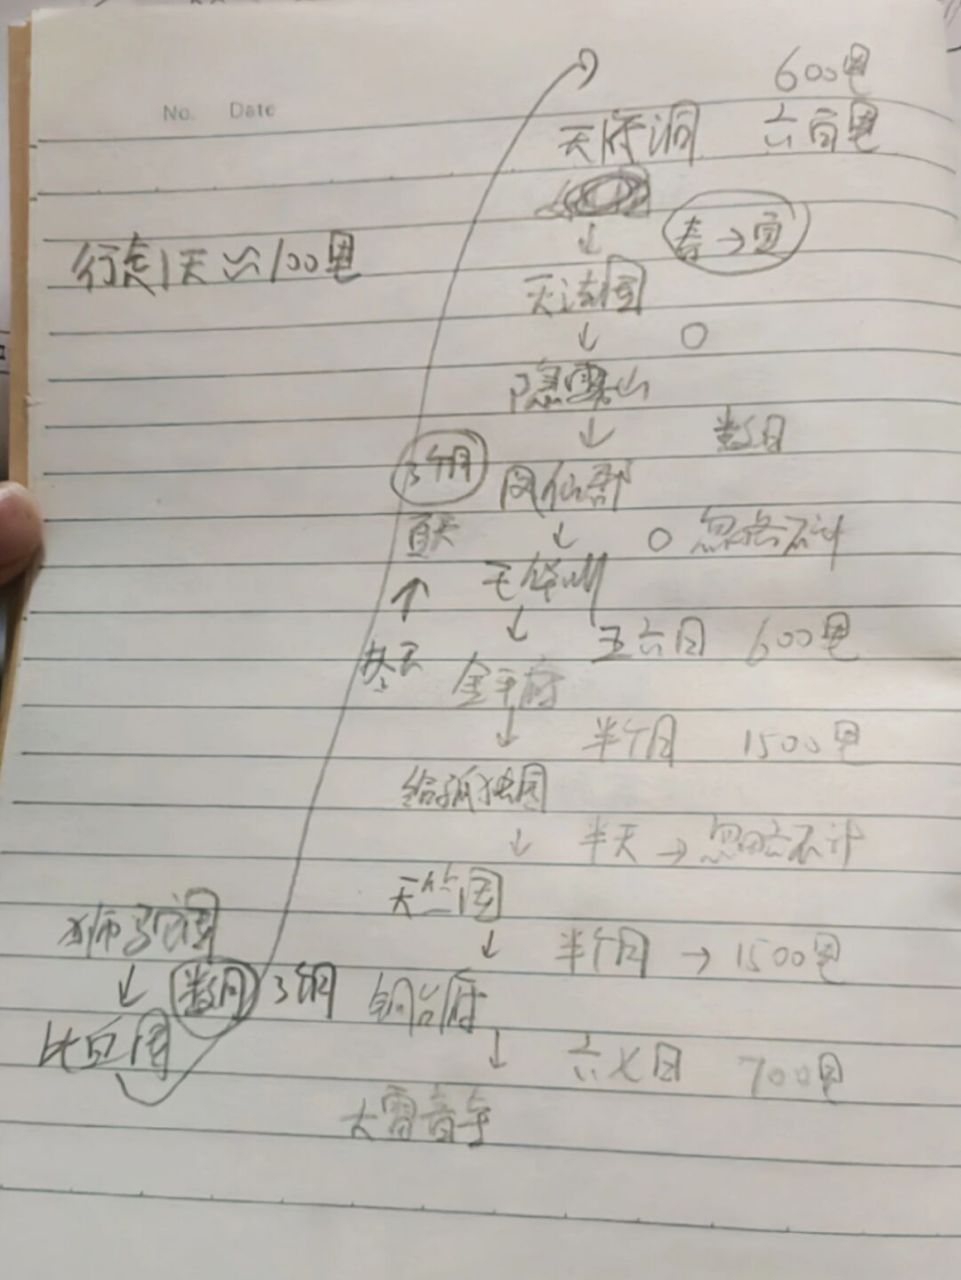 No. Date
600里
天府洞 六百里
↓ 春→夏
行走1天≈100里
灭法国
↓ 0
隐雾山
↓ 数月
3个月 凤仙郡
夏天 ↓ 0 忽略不计
↑ 玉华州
↓ 五六日 600里
冬天 金平府
↓ 半个月 1500里
给孤独园
↓ 半天 → 忽略不计
天竺国
狮驼国 ↓ 半个月 → 1500里
↓ 数月 3个月 铜台府
比丘国 ↓ 六七日 700里
大雷音寺